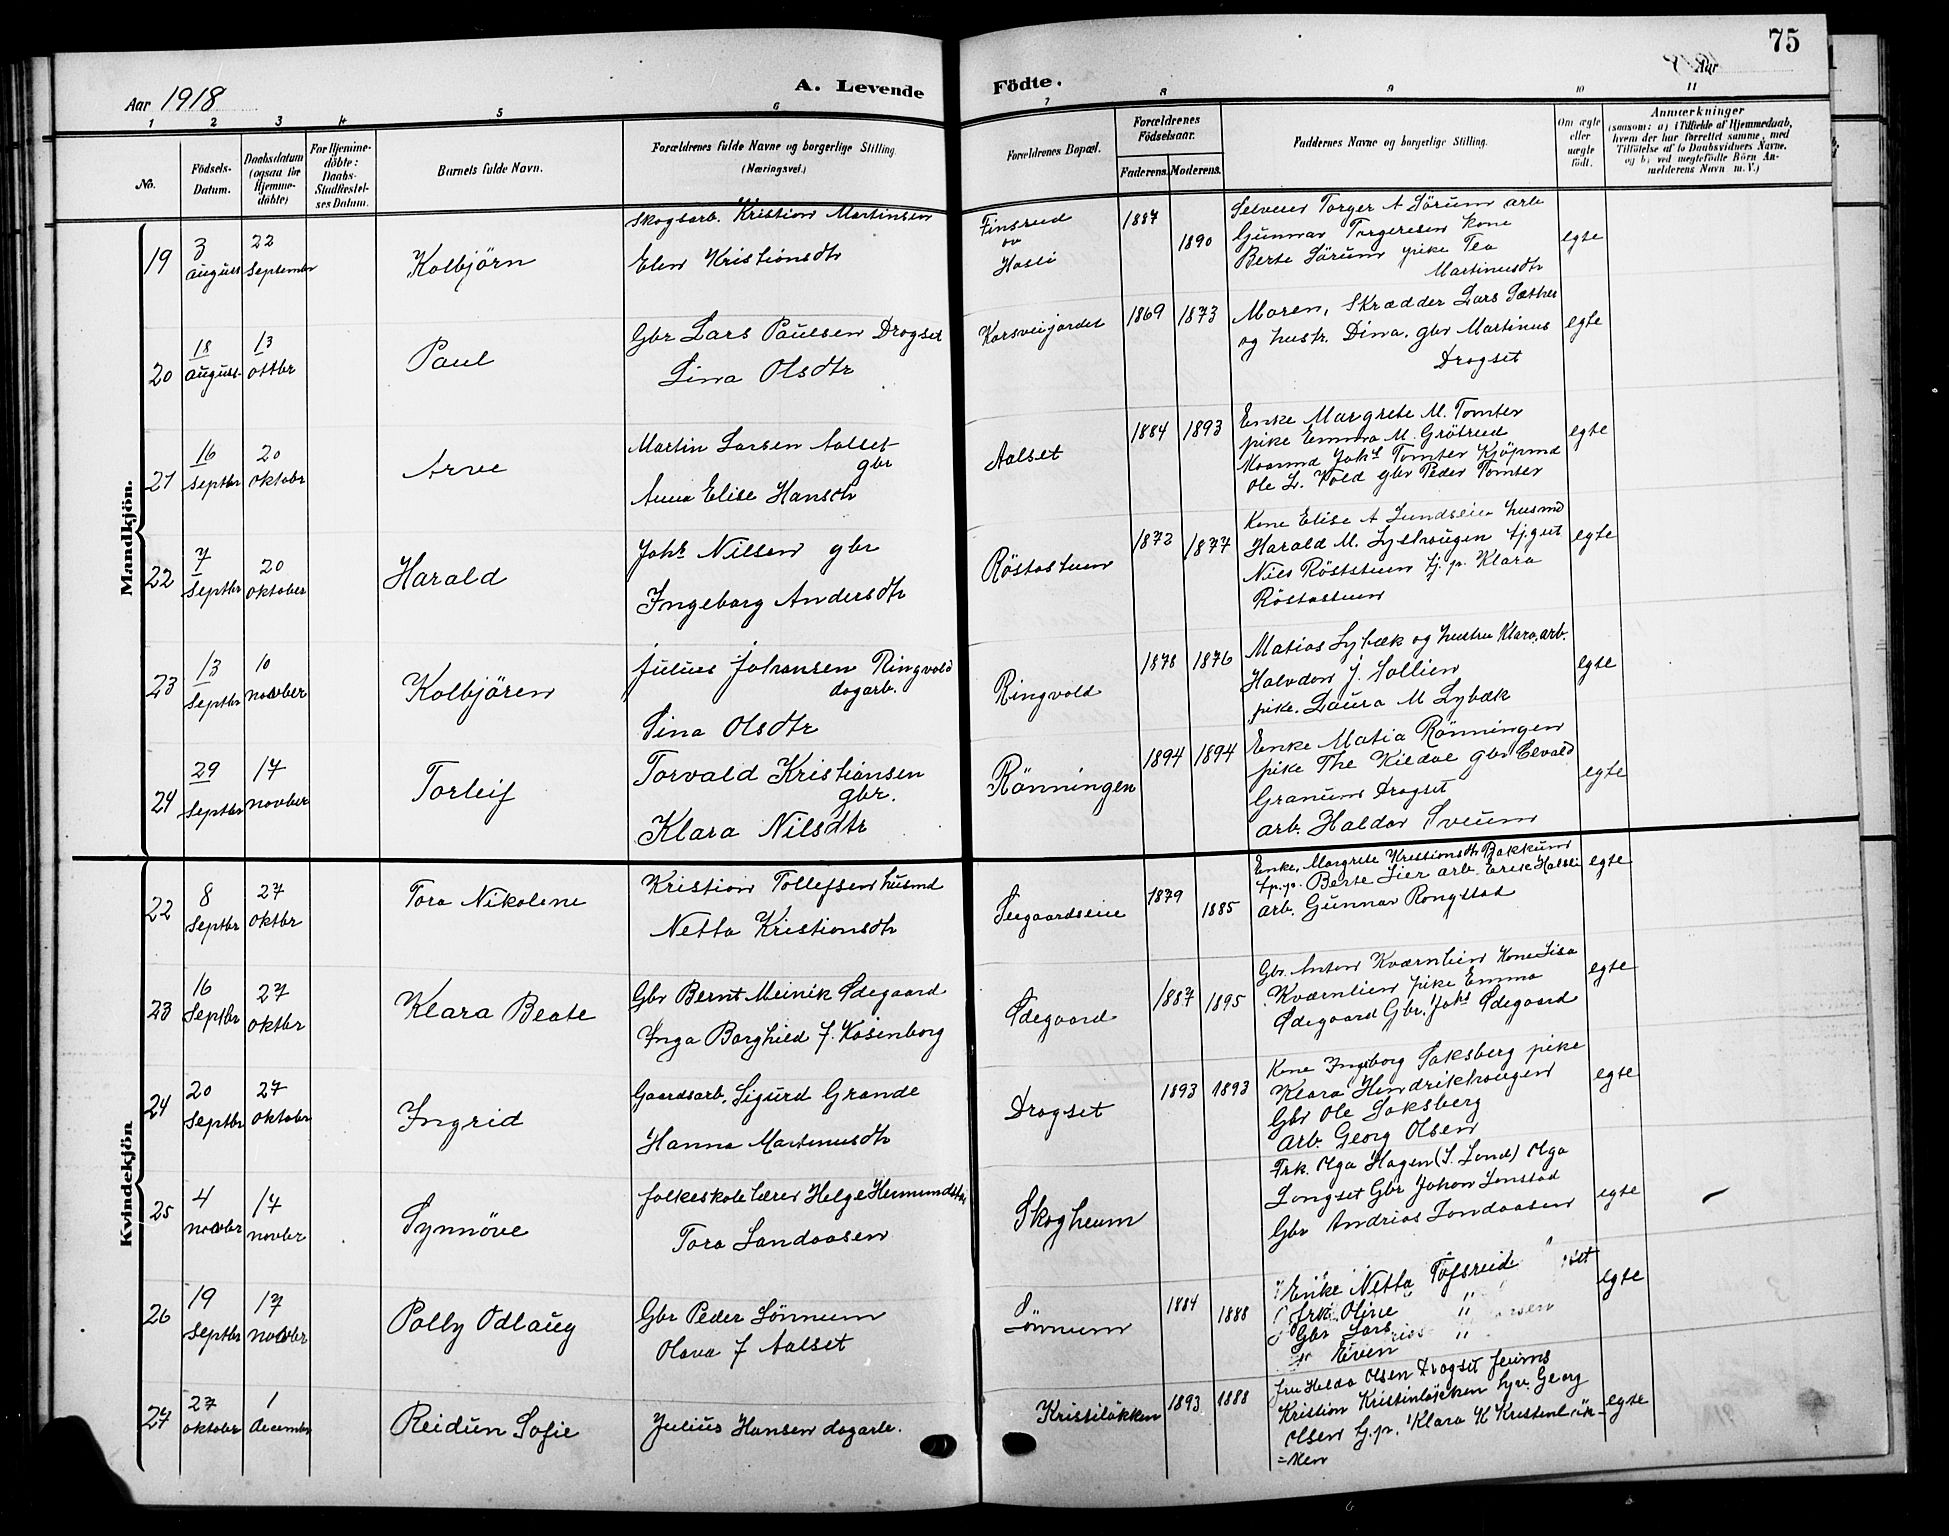 75
Aar 1918
A. Levende Födte.
Aar
1 2 3 4 5 6 7 8 9 10 11
No.
Födsels-Datum.
Daabsdatum (ogsaa for Hjemme-döbte)
For Hjemme-döbte: Daabs-Stadfæstel-ses Datum.
Barnets fulde Navn.
Forældrenes fulde Navne og borgerlige Stilling (Næringsvei.)
Forældrenes Bopæl.
Forældrenes Födselsaar.
Faderens. Moderens.
Faddernes Navne og borgerlige Stilling.
Om ægte eller uægte født.
Anmærkninger
(saasom: a) i Tilfælde af Hjemmedaab, hvem der har forrettet samme, med Tilföielse af to Daabsvidners Navne, og b) ved uægtefödte Börn An-melderens Navn m. V.)
Mandkjön.
19 3 august 22 September
Kolbjörn
Skogsarb. Kristian Martinsen
Elen Kristiansdtr
Finsrud
1887 1890
Selveier Torger A Sörum arb
Gunnar Torgersen kone
Berte Sörum pike Tea
Martinusdtr
egte
20 18 august 13 oktbr
Paul
Gbr Lars Paulsen Drogset
Lina Olsdtr
Korsveijordet
1869 1873
Moren, Skrædder Lars Sæther
og hustr. Dina. gbr Martinus
Drogset
egte
21 16 Septbr 20 oktobr
Arve
Martin Larsen Aalset
gbr
Anna Elise Hansdtr
Aalset
1884 1893
Enke Margrete M. Tomter
pike Emma M. Grötrud
Johs Tomter Kjöpmd
Ole L. Vold gbr Peder Tomter
egte
22 7 Septbr 20 oktober
Harald
Johs Nilsen gbr
Ingeborg Andersdtr
Röstostuen
1872 1877
Kone Elise A Lundseie husmd
Harald M. tj.gut
Nils Röststuen tj. p. Klara
Röstostuen
egte
23 13 Septbr 10 november
Kolbjören
Julius Johansen Ringvold
dagarb.
Lina Olsdtr
Ringvold
1878 1876
Matias Lybæk og hustru Klara, arb.
Halvdan J. Sollien
pike. Laura M Lybæk
egte
24 29 Septbr 17 novber
Torleif
Torvald Kristiansen
gbr.
Klara Nilsdtr
Rönningen
1894 1894
Enke Matia Rönningen
pike The Kildal gbr Elvald
Granum Drogset
arb. Haldor Sveum
egte
Kvindekjön
22 8 Septbr 27 oktbr
Tora Nikoline
Kristian Tollefsen husmd
Netta Kristiansdtr
Seegaardseie
1879 1885
Enke, Margrete Kristiansdtr Bakkum
tj.p. Berte Lier arb. Erik Halsli
arb. Gunnar Rongstad
egte
23 16 Septbr 27 oktbr
Klara Beate
Gbr Bernt Meinik Ødegaard
Inga Borghild f. Kosenborg
Ødegaard
1887 1895
Gbr. Anton Kværnlien Kone Lisa
Kværnlien pike Emma
Ødegaard Gbr. Johs Ødegaard
egte
24 20 Septbr 27 oktober
Ingrid
Gaardsarb. Sigurd Grande
Hanna Martinusdtr
Drogset
1893 1893
Kone Ingeborg Saksberg pike
Klara Hendrikhougen
Gbr Ole Saksberg
arb. Georg Olsen
egte
25 4 novbr 17 novbr
Synnöve
folkeskolelærer Helge Hemmundstad
Tora Landaasen
Skogheum
Frk. Olga Hagen (S. Land) Olga
Longset Gbr Johan Lonstad
Gbr Andrias Landaasen
egte
26 19 Septbr 17 novbr
Polly Odlaug
Gbr Peder Lönnum
Olava f Aalset
Lönnum
1884 1888
Enke Netta Tofsrud
Frk. Oline "
Gbr Lars "
Even "
egte
27 27 oktober 1 december
Reidun Sofie
Julius Hansen dagarb.
Kristilökken
1893 1888
fru Helda Olsen Drogset
Kristian Kristinlökken Georg
Olsen tj.p. Klara K Kristinlök-
=ken
egte